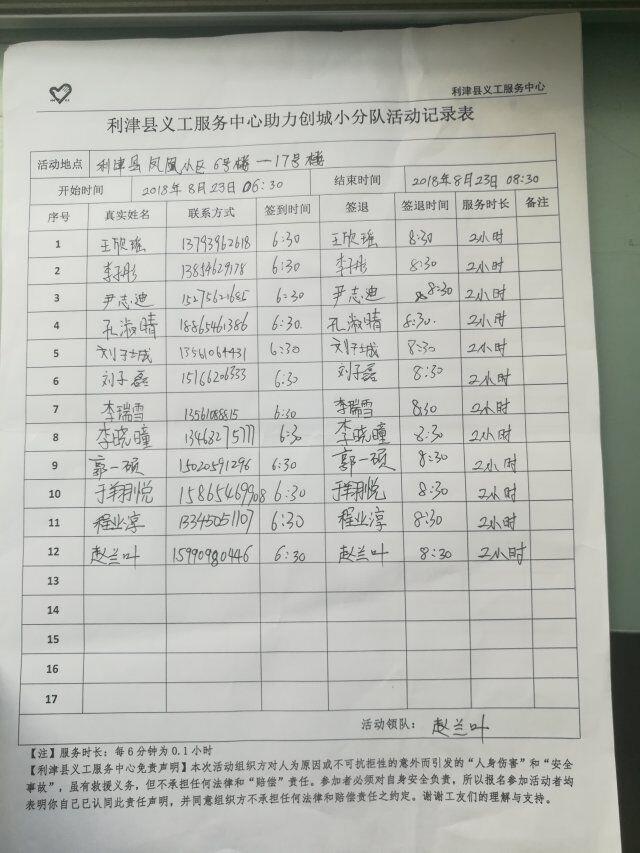 利津县义工服务中心
利津县义工服务中心助力创城小分队活动记录表
活动地点 利津县凤凰小区6号楼一17号楼
开始时间 2018年8月23日 06:30 结束时间 2018年8月23日 08:30
序号 真实姓名 联系方式 签到时间 签退 签退时间 服务时长 备注
1 王欣瑶 13793962618 6:30 王欣瑶 8:30 2小时
2 李子彤 13854629178 6:30 李子彤 8:30 2小时
3 尹志迪 6:30 尹志迪 8:30 2小时
4 孔淑晴 18865461386 6:30. 孔淑晴 8:30. 2小时
5 13561064431 6:30 8:30 2小时
6 刘子磊 15166206333 6:30 刘子磊 8:30 2小时
7 李瑞雪 13561088815 6:30 李瑞雪 8:30 2小时
8 李晓曈 13463275777 6:30 李晓曈 8:30 2小时
9 郭一硕 15020591296 6:30 郭一硕 8:30 2小时
10 于翔悦 15865469908 6:30 于翔悦 8:30 2小时
11 程业淳 13345051107 6:30 程业淳 8:30 2小时
12 赵兰叶 15990980446 6:30 赵兰叶 8:30 2小时
13
14
15
16
17
活动领队： 赵兰叶
【注】服务时长：每6分钟为0.1小时
【利津县义工服务中心免责声明】本次活动组织方对人为原因或不可抗拒性的意外而引发的“人身伤害”和“安全
事故”，虽有救援义务，但不承担任何法律和“赔偿”责任。参加者必须对自身安全负责，所以报名参加活动者均
表明你自己已认同此责任声明，并同意组织方不承担任何法律和赔偿责任之约定。谢谢工友们的理解与支持。